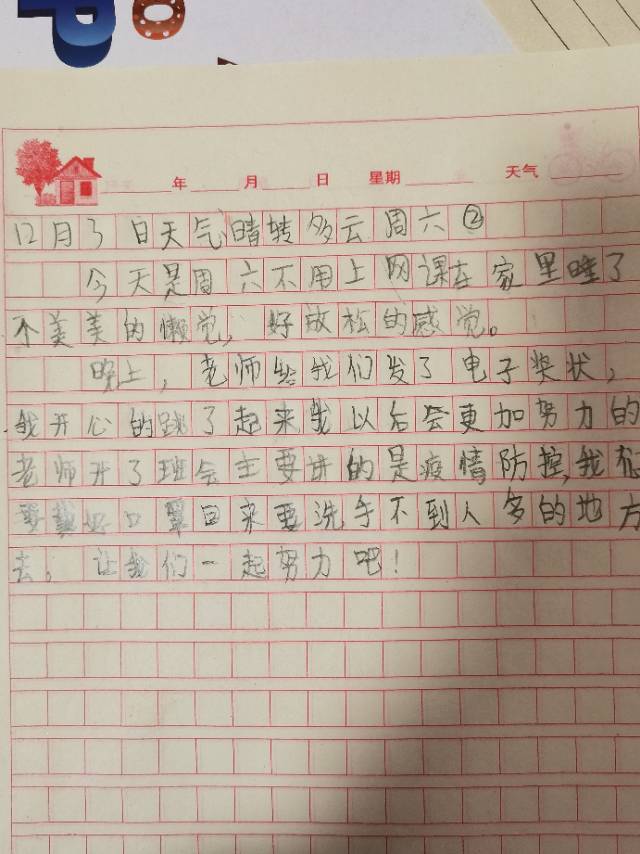 P
年 月 日 星期 天气
12月3日天气晴转多云周六②
今天是周六不用上网课在家里睡了
个美美的懒觉,好放松的感觉。
晚上,老师给我们发了电子奖状,
我开心的跳了起来我以后会更加努力的
老师开了班会主要讲的是疫情防控,我们
要戴好口罩回来要洗手不到人多的地方
去。让我们一起努力吧!